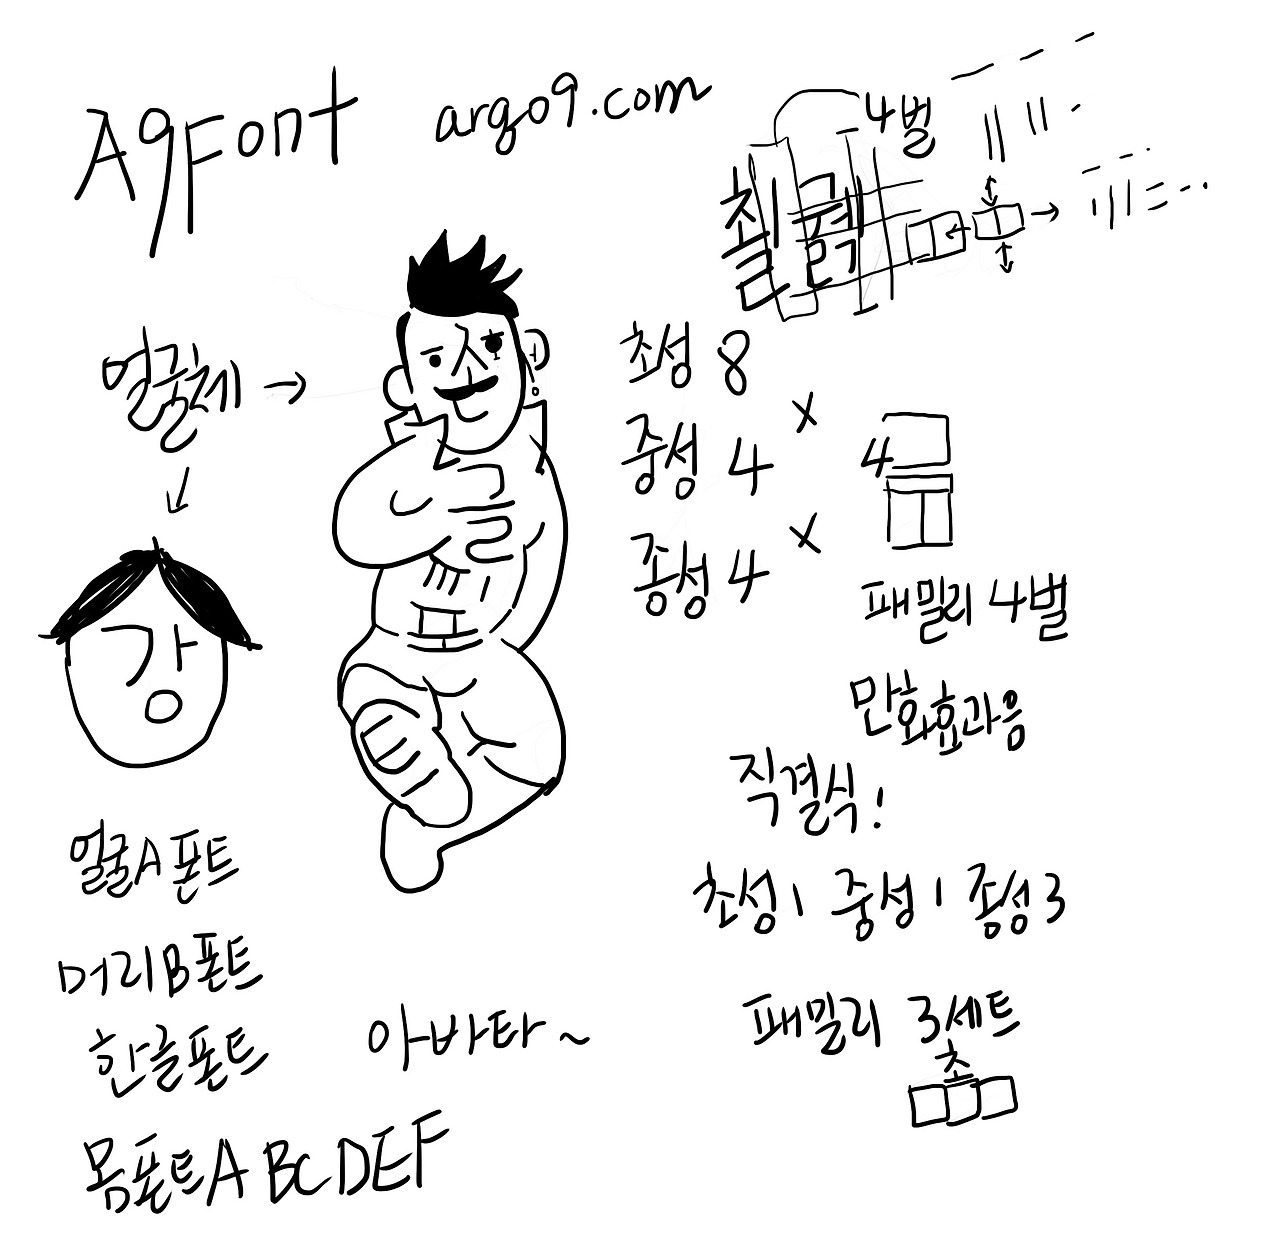 A9Font
argo9.com
4벌
얼굴체 →
초성 8
중성 4 x 4
종성 4 x
패밀리 4벌
만화효과음
직결식!
초성 1 중성 1 종성 3
패밀리 3세트
초
강
얼굴A폰트
머리B폰트
한글폰트
아바타~
몸폰트ABCDEF